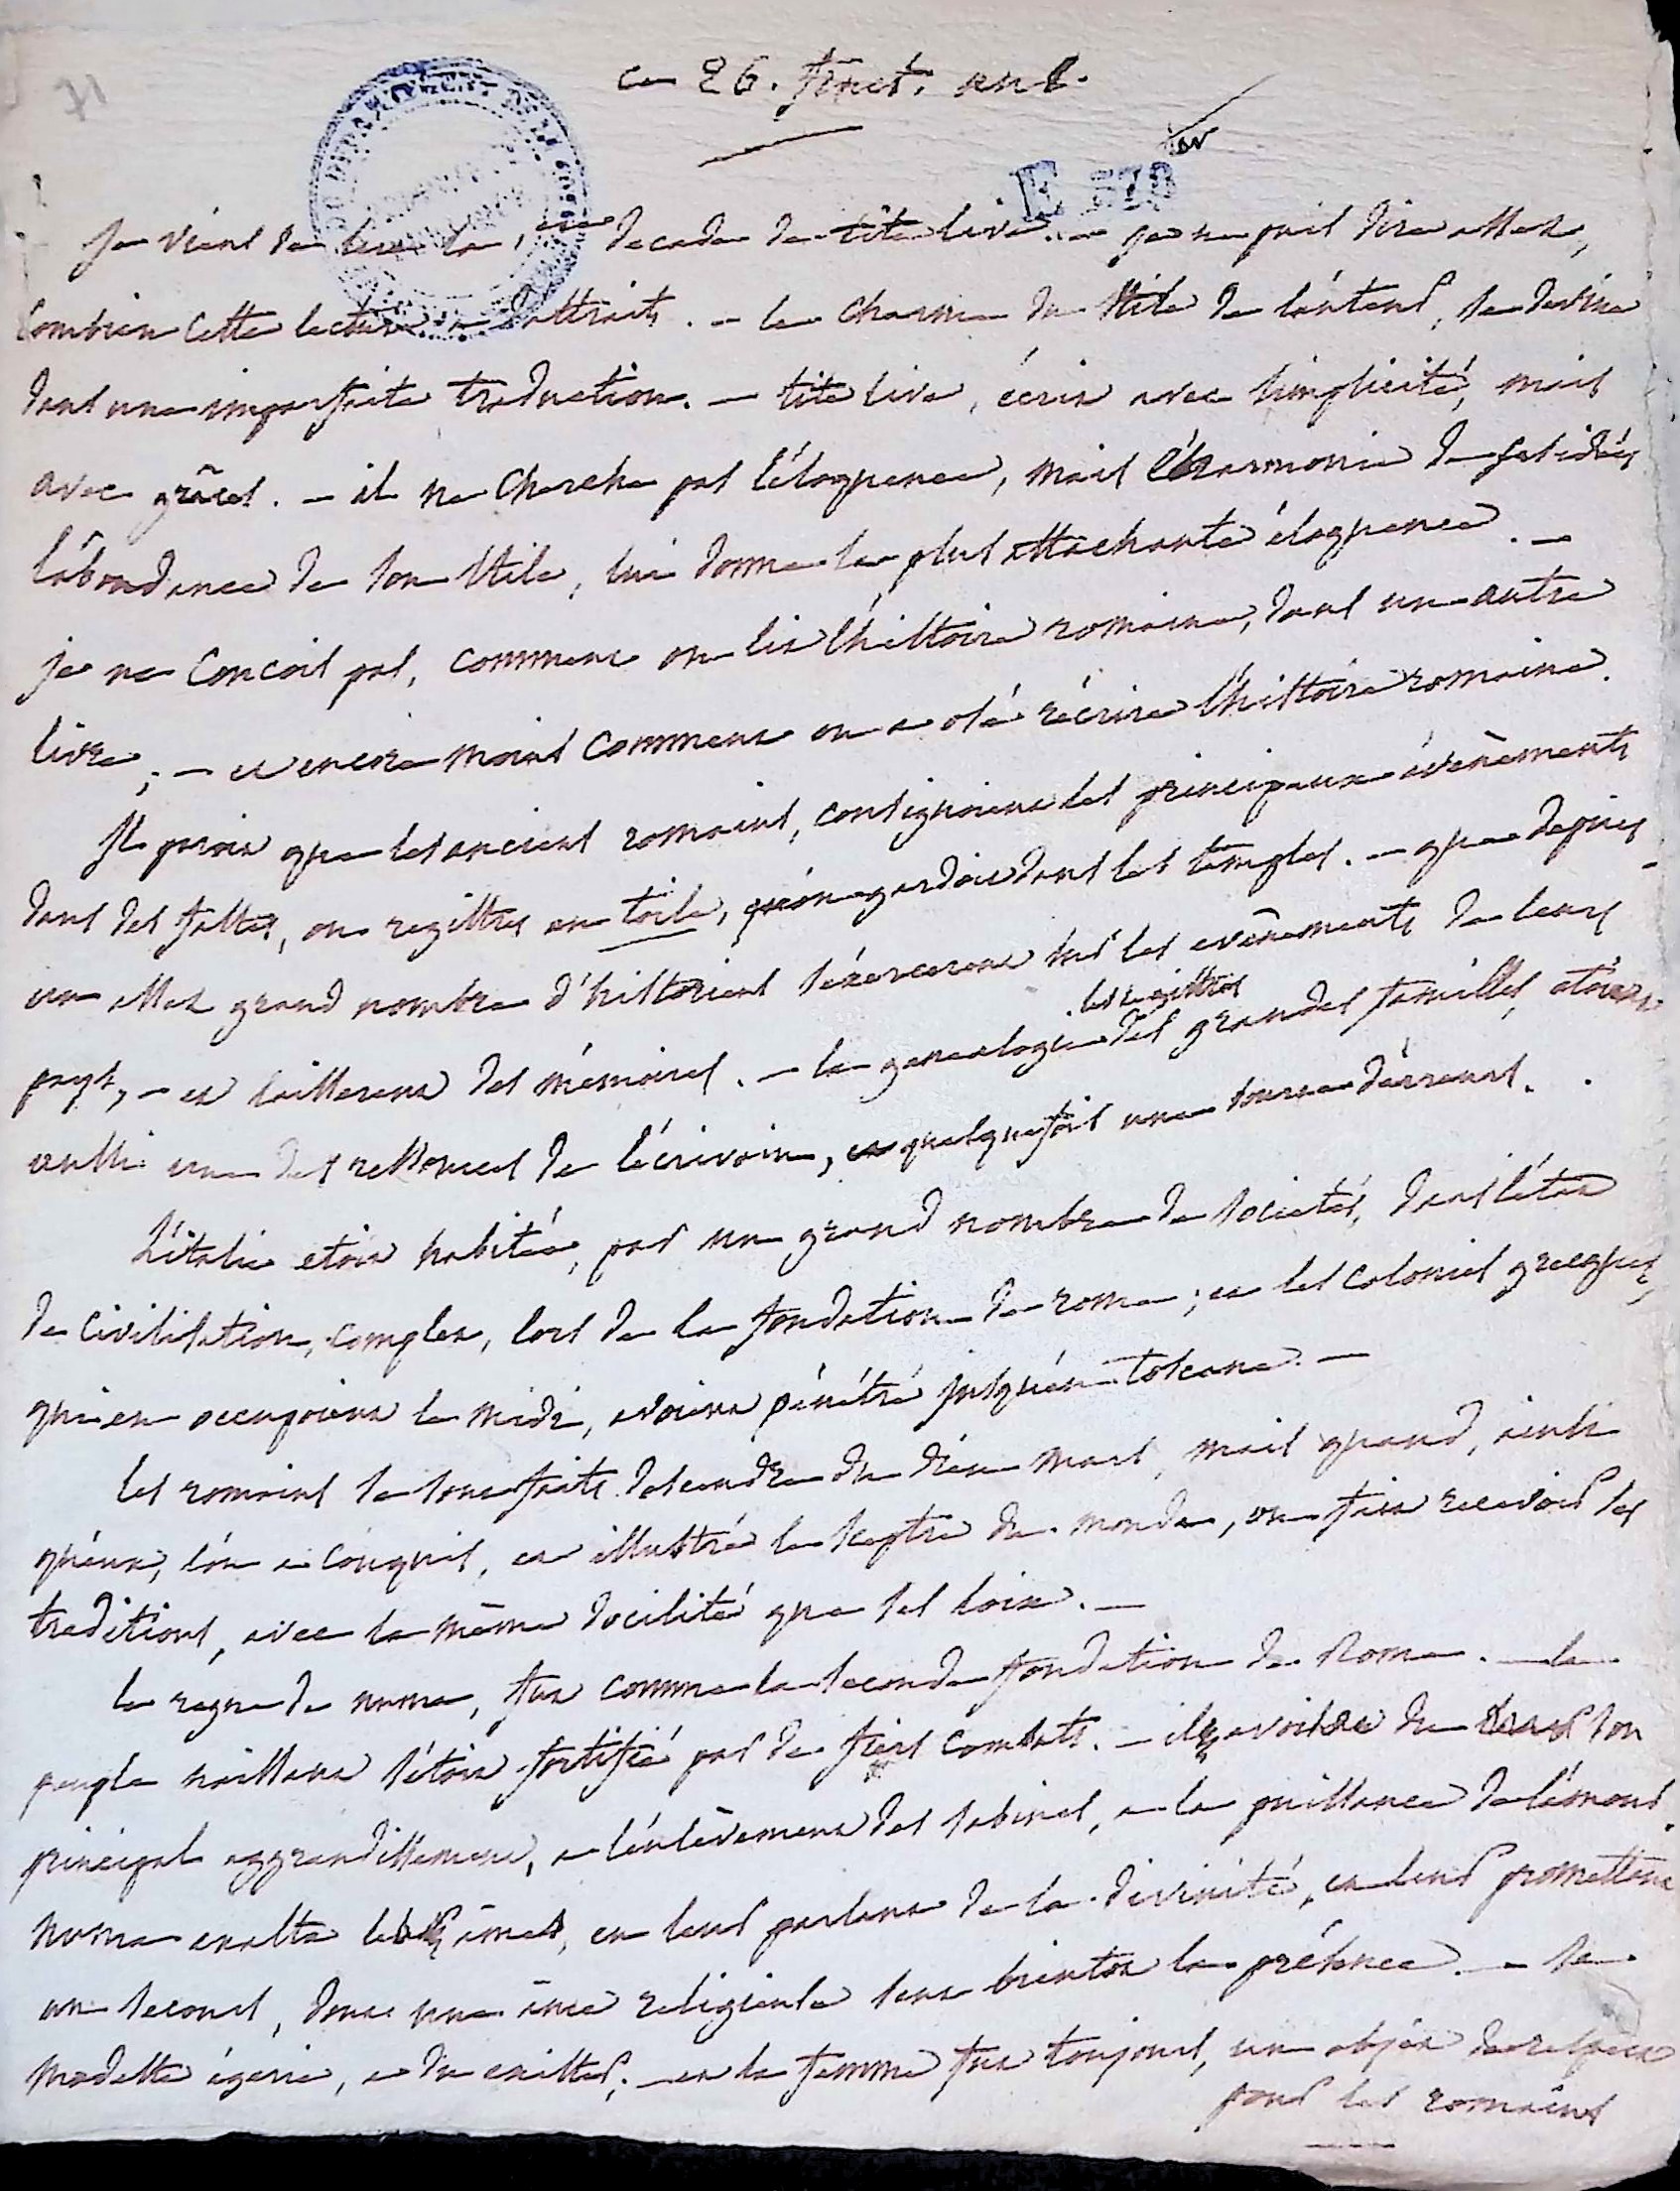 71
ce 26. fruct. an 8.
E 570
je viens de lire la 1ere decade de tite live. — je ne puis dire assez,
combien cette lecture a d'attraits. — le charme du stile de l'auteur, se devine
dans une imparfaite traduction. — tite live, écrit avec simplicité, mais
avec grâces. — il ne cherche pas l'éloquence, mais l'harmonie de ses idées
l'abondance de son stile, lui donne la plus attachante éloquence. —
je ne concois pas, comment on lit l'histoire romaine, dans un autre
livre; — et encore moins comment on a osé récrire l'histoire romaine.
Il paroit que les anciens romains, consignoient les principaux évènements
dans des fastes, ou registres en toile, qu'on gardoit dans les temples. — que depuis
un assez grand nombre d'historiens s'exercerent sur les evénements de leurs
pays, — et laisserent des mémoires. — la genealogie des grandes familles, étoient
les registres
aussi une des ressources de l'écrivain, et quelquefois une source d'erreurs.
L'italie etoit habitée, par un grand nombre de societés, dans l'état
de civilisation, complet, lors de la fondation de rome; et les colonies grecques,
qui en occupoient le midi, avoient pénétré jusqu'en toscane. —
les romains se sont faits descendre du dieu mars, mais quand, ainsi
qu'eux, l'on a conquis, et illustré le sceptre du monde, on fait recevoir ses
traditions, avec la même docilité que ses loix. —
le regne de numa, fut comme la seconde fondation de Rome. — le
peuple naissant s'étoit fortifié par de fiers combats. — il avoit du son
principal aggrandissement, a l'enlèvement des sabines, a la puissance de l'amour.
numa exalta les âmes, en leur parlant de la divinité, en leur promettant
un secours, dont une âme religieuse sent bientot la présence. — sa
modeste égerie, a du exister; — et la femme fut toujours, un objet de respect
pour les romains